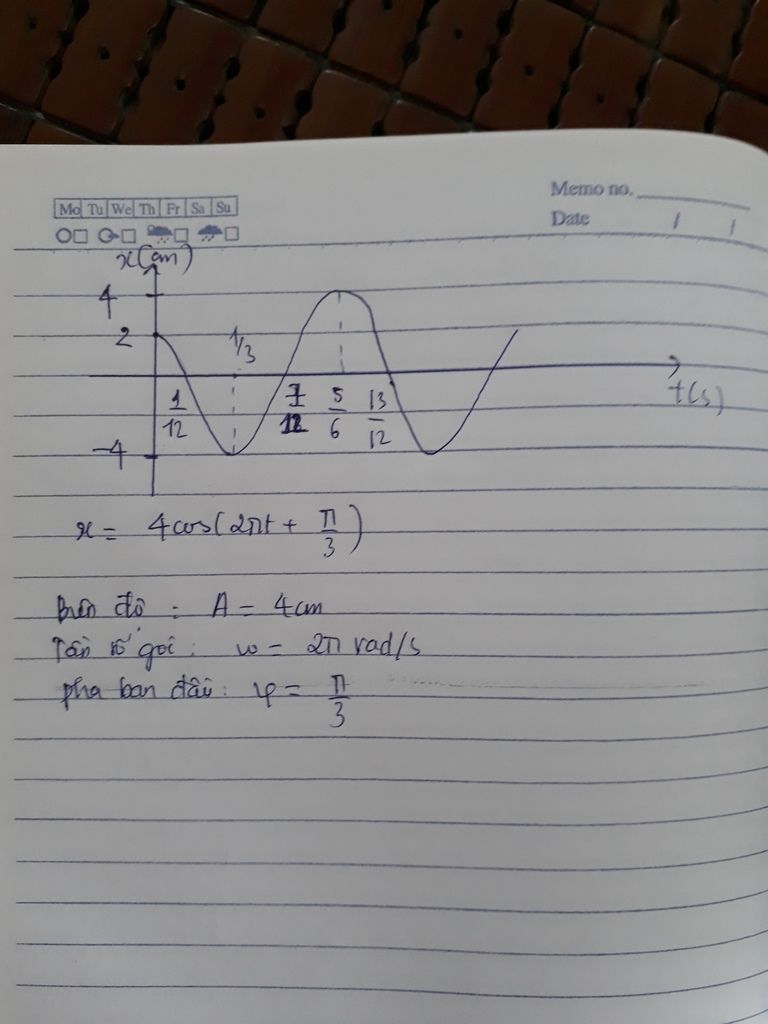 Memo no.
Mo Tu We Th Fr Sa Su
Date / /
x(cm)
4
2
1/3
1/12 7/12 5/6 13/12
t(s)
-4
x = 4cos(2πt + π/3)
Biên độ : A = 4cm
Tần số góc : ω = 2π rad/s
pha ban đầu : φ = π/3